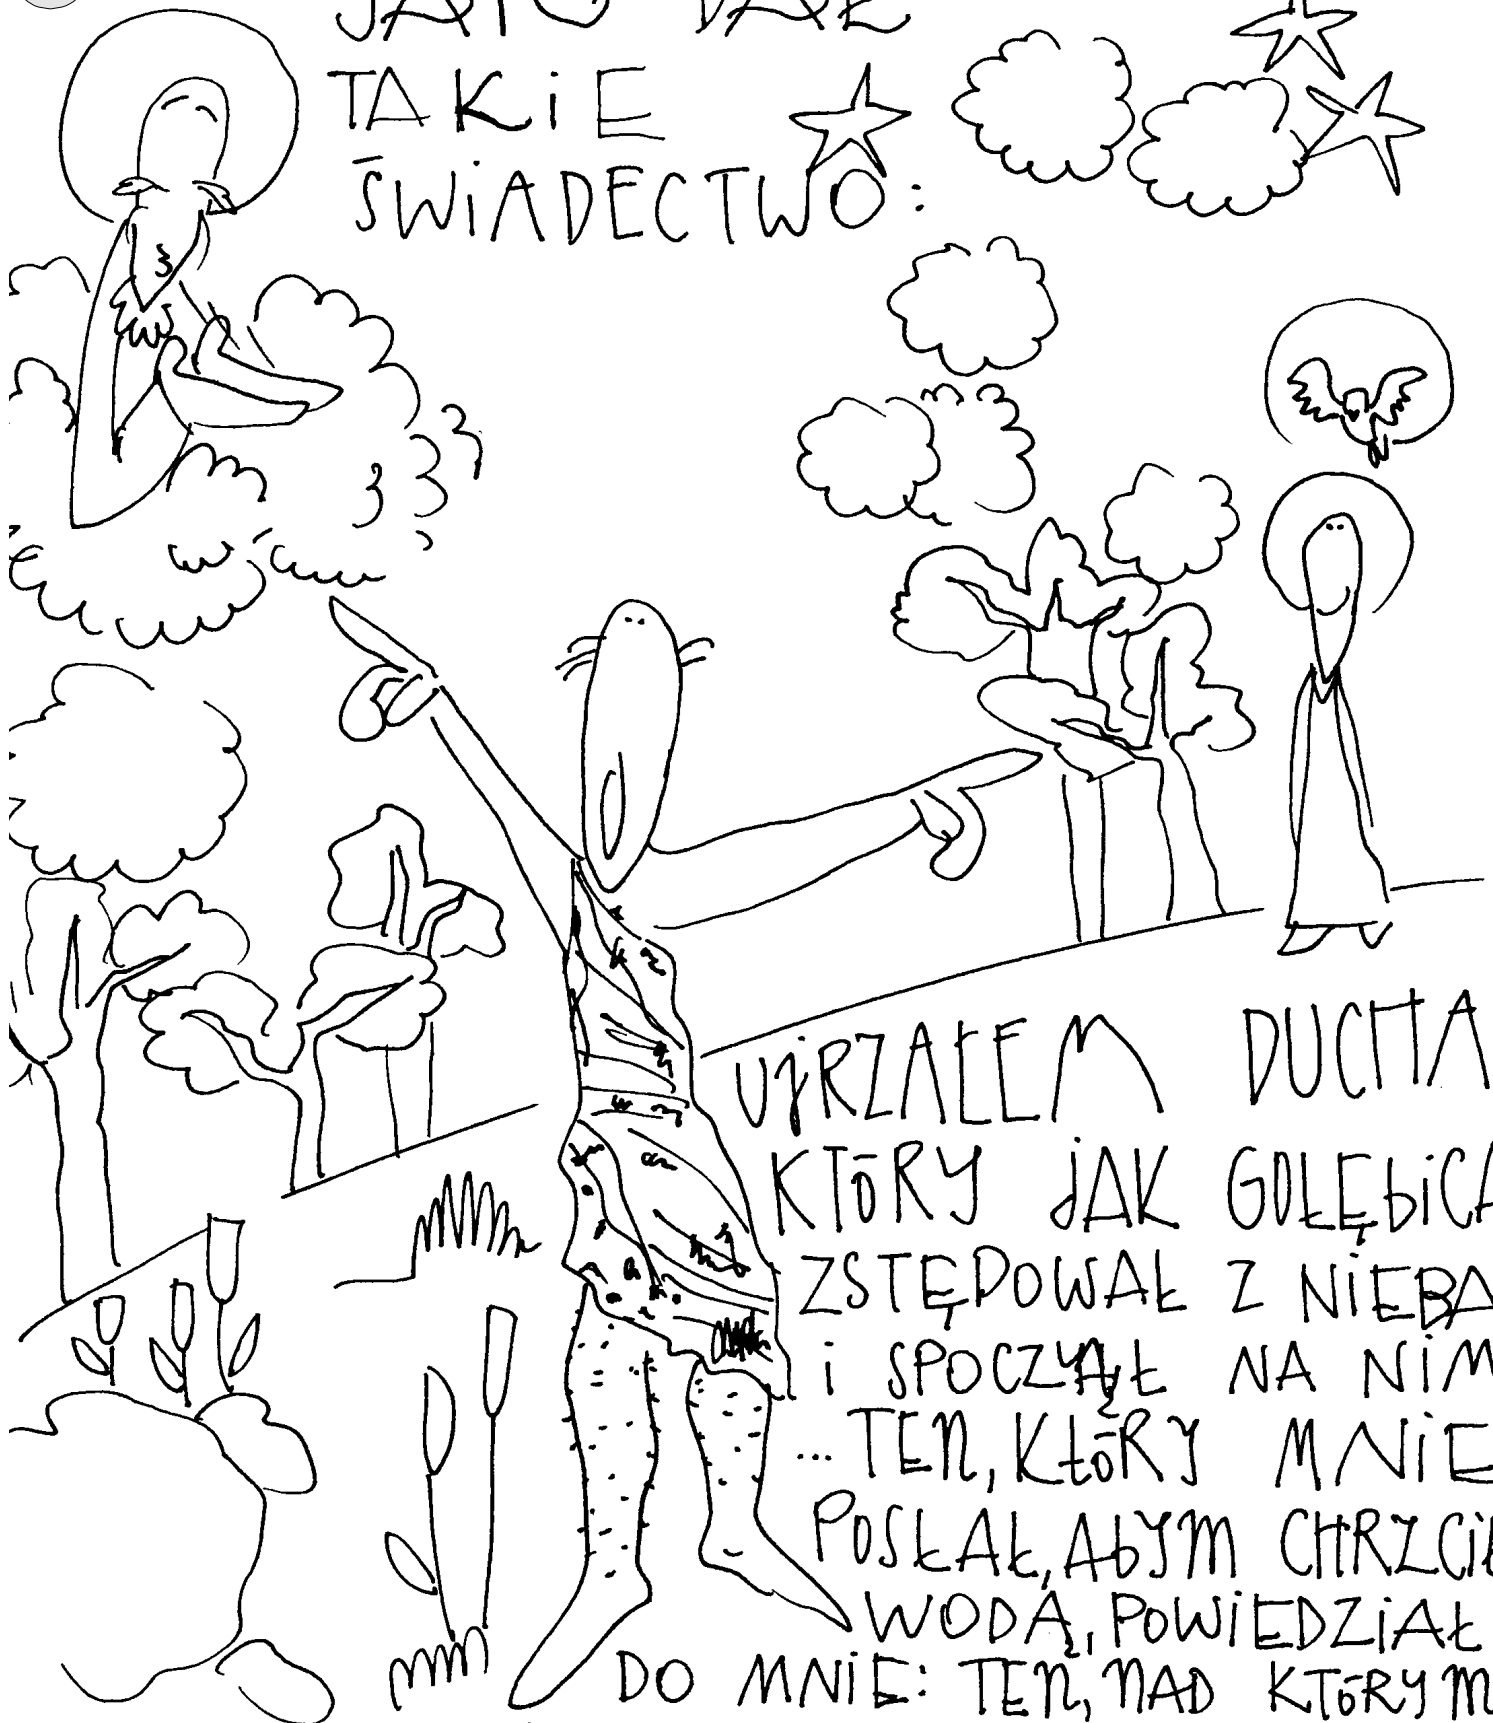 JAN DAŁ
TAKIE
ŚWIADECTWO:
UJRZAŁEM DUCHA
KTÓRY JAK GOŁĘBICA
ZSTĘPOWAŁ Z NIEBA
I SPOCZĄŁ NA NIM
... TEN, KTÓRY MNIE
POSŁAŁ, ABYM CHRZCIŁ
WODĄ, POWIEDZIAŁ
DO MNIE: TEN, NAD KTÓRYM